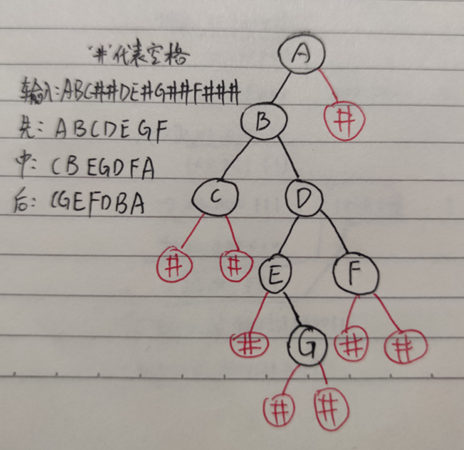 '#'代表空格
输入:ABC##DE#G##F###
先: ABCDEGF
中: CBEGDFA
后: CGEFDBA
A
B #
C D
# # E F
# G # #
# #